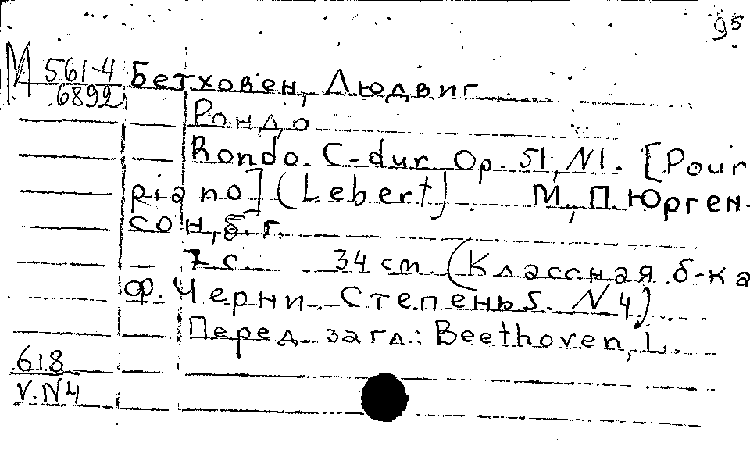 95
М 561-4
6892
Бетховен, Людвиг
Рондо
Rondo. C-dur Op. 51, N1. [Pour
piano] (Lebert). М., П. Юрген-
сон, б. г.
7 с. 34 см (Классная б-ка
ф. Черни. Степень 5. N 4)
Перед загл.: Beethoven, L.
618
V. N4